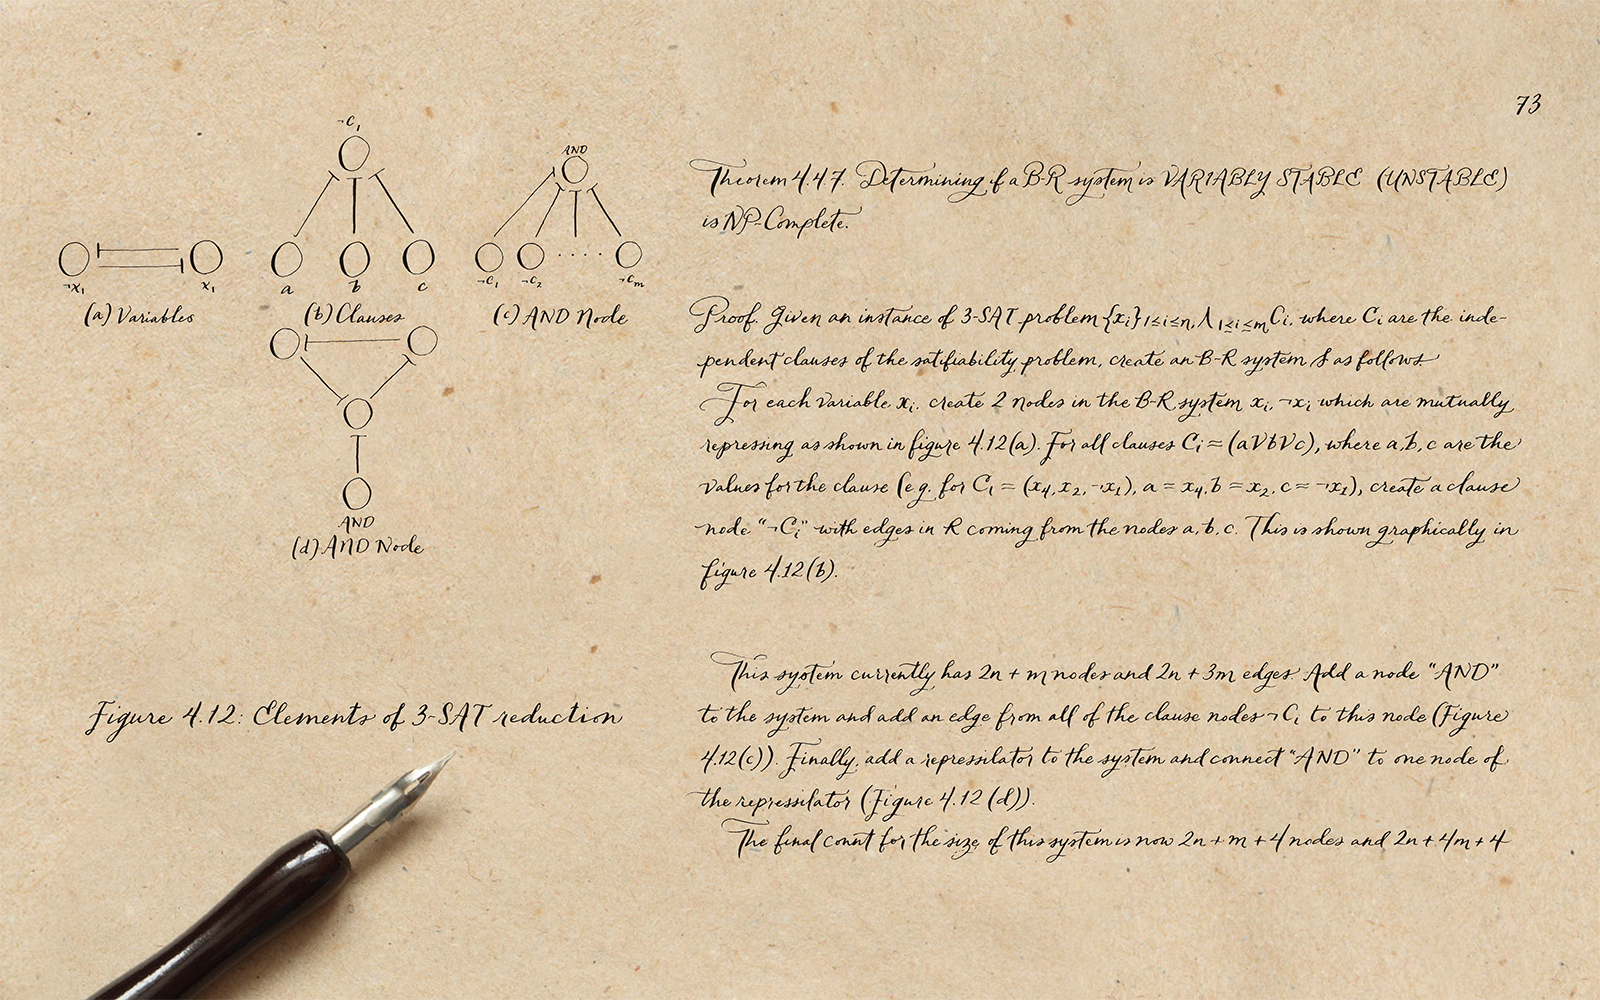 73
¬C₁
AND
¬x₁
x₁
a
b
c
¬C₁
¬C₂
....
¬Cₘ
(a) Variables
(b) Clauses
(c) AND Node
AND
(d) AND Node
Figure 4.12: Elements of 3-SAT reduction
Theorem 4.4.7. Determining if a B-R system is VARIABLY STABLE (UNSTABLE)
is NP-Complete.
Proof. Given an instance of 3-SAT problem {xᵢ}₁≤ᵢ≤ₙ, ∧₁≤ᵢ≤ₘCᵢ, where Cᵢ are the inde-
pendent clauses of the satifiability problem, create an B-R system S as follows.
For each variable xᵢ, create 2 nodes in the B-R system xᵢ, ¬xᵢ which are mutually
repressing as shown in figure 4.12(a). For all clauses Cᵢ = (a∨b∨c), where a, b, c are the
values for the clause (e.g. for C₁ = (x₄, x₂, ¬x₁), a = x₄, b = x₂, c = ¬x₁), create a clause
node "¬Cᵢ" with edges in R coming from the nodes a, b, c. This is shown graphically in
figure 4.12(b).
This system currently has 2n + m nodes and 2n + 3m edges. Add a node "AND"
to the system and add an edge from all of the clause nodes ¬Cᵢ to this node (Figure
4.12(c)). Finally, add a repressilator to the system and connect "AND" to one node of
the repressilator (Figure 4.12 (d)).
The final count for the size of this system is now 2n + m + 4 nodes and 2n + 4m + 4